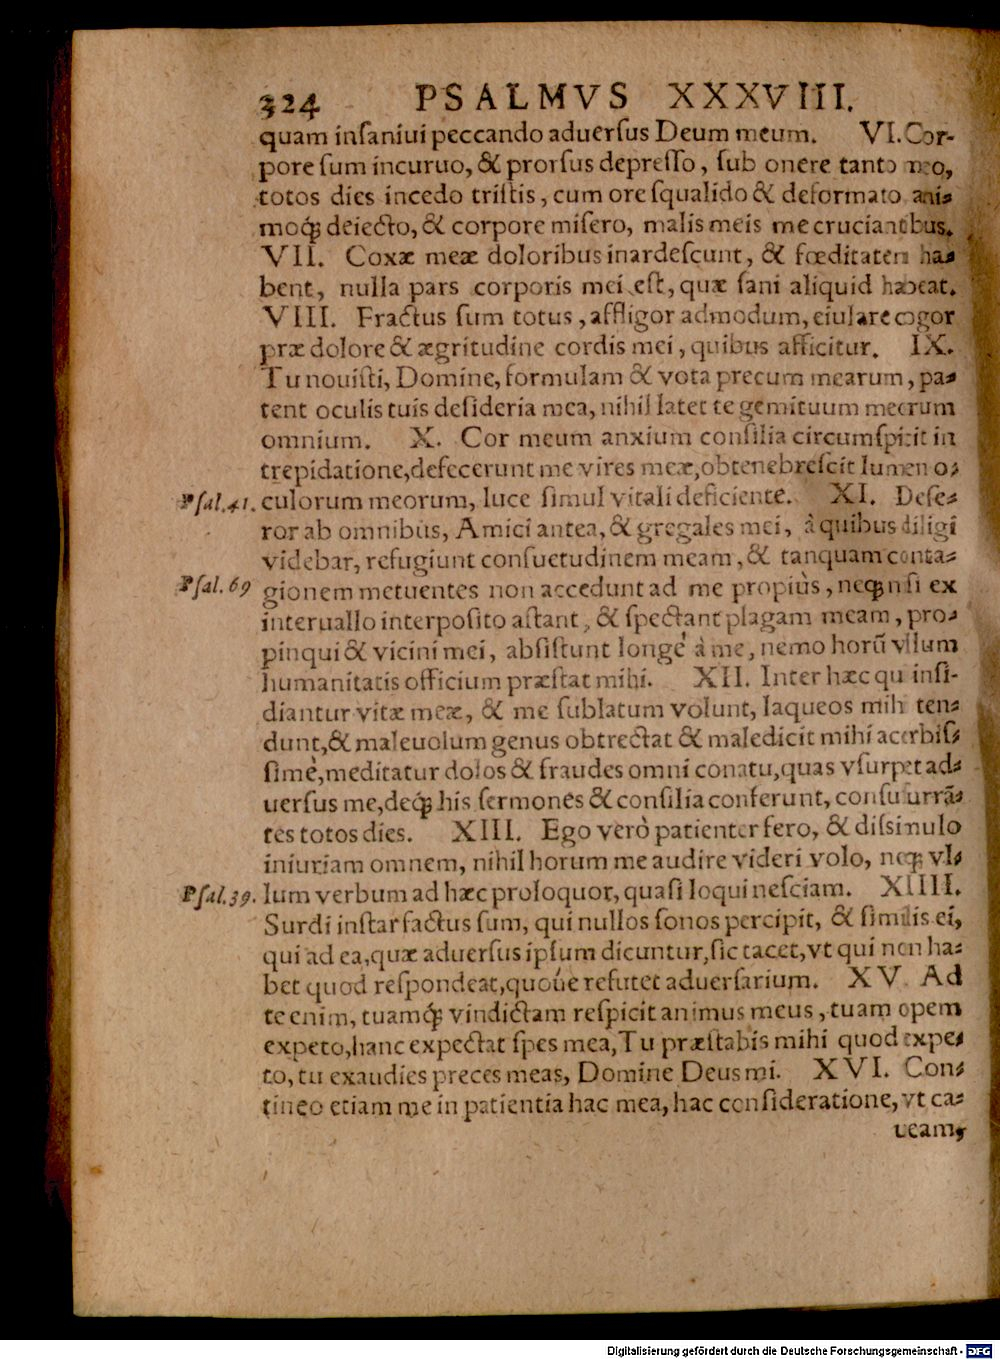 324 PSALMVS XXXVIII.
quam inſaniui peccando aduerſus Deum meum. VI. Cor-
pore ſum incuruo, & prorſus depreſſo, ſub onere tanto meo,
totos dies incedo triſtis, cum ore ſqualido & deformato ani-
moq́; deiecto, & corpore miſero, malis meis me cruciantibus.
VII. Coxæ meæ doloribus inardeſcunt, & fœditatem ha-
bent, nulla pars corporis mei eſt, quæ ſani aliquid habeat.
VIII. Fractus ſum totus, affligor admodum, eiulare cogor
præ dolore & ægritudine cordis mei, quibus afficitur. IX.
Tu nouiſti, Domine, formulam & vota precum mearum, pa-
tent oculis tuis deſideria mea, nihil latet te gemituum meorum
omnium. X. Cor meum anxium conſilia circumſpicit in
trepidatione, defecerunt me vires meæ, obtenebreſcit lumen o-
Pſal. 41. culorum meorum, luce ſimul vitali deficiente. XI. Deſe-
ror ab omnibus, Amici antea, & gregales mei, à quibus diligi
videbar, refugiunt conſuetudinem meam, & tanquam conta-
Pſal. 69 gionem metuentes non accedunt ad me propiùs, neq; niſi ex
interuallo interpoſito aſtant, & ſpectant plagam meam, pro-
pinqui & vicini mei, abſiſtunt longè à me, nemo horũ vllum
humanitatis officium præſtat mihi. XII. Inter hæc qui inſi-
diantur vitæ meæ, & me ſublatum volunt, laqueos mihi ten-
dunt, & maleuolum genus obtrectat & maledicit mihi acerbiſ-
ſimè, meditatur dolos & fraudes omni conatu, quas vſurpet ad-
uerſus me, deq́; his ſermones & conſilia conferunt, conſuſurrã-
tes totos dies. XIII. Ego verò patienter fero, & diſsimulo
iniuriam omnem, nihil horum me audire videri volo, neq; vl-
Pſal. 39. lum verbum ad hæc proloquor, quaſi loqui neſciam. XIIII.
Surdi inſtar factus ſum, qui nullos ſonos percipit, & ſimilis ei,
qui ad ea, quæ aduerſus ipſum dicuntur, ſic tacet, vt qui non ha-
bet quod reſpondeat, quoúe refutet aduerſarium. XV. Ad
te enim, tuamq́; vindictam reſpicit animus meus, tuam opem
expeto, hanc expectat ſpes mea, Tu præſtabis mihi quod expe-
to, tu exaudies preces meas, Domine Deus mi. XVI. Con-
tineo etiam me in patientia hac mea, hac conſideratione, vt ca-
ueam,
Digitalisierung gefördert durch die Deutsche Forschungsgemeinschaft - DFG